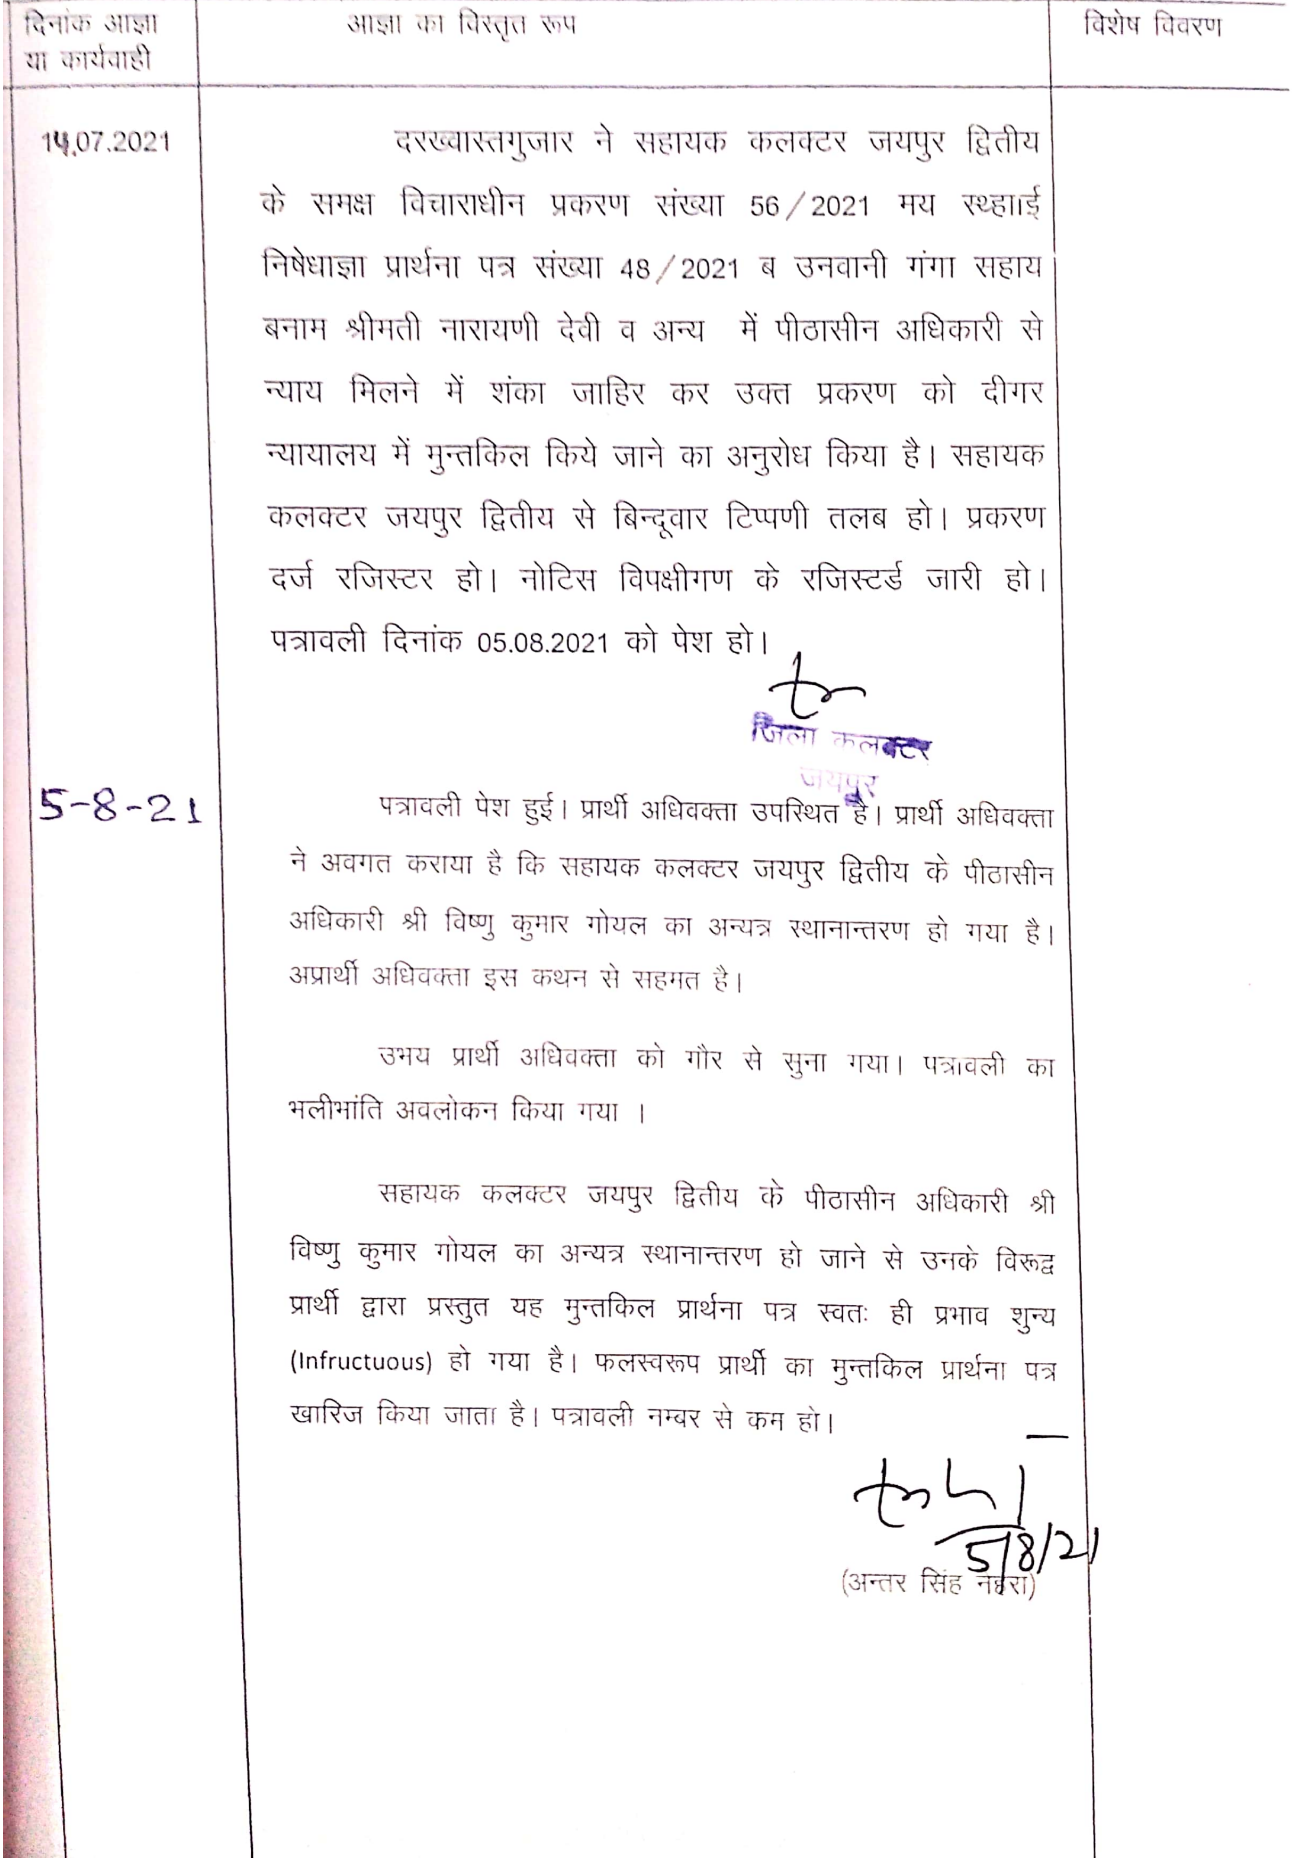 दिनांक आज्ञा
या कार्यवाही
आज्ञा का विस्तृत रूप
विशेष विवरण
14.07.2021
दरख्वास्तगुजार ने सहायक कलक्टर जयपुर द्वितीय
के समक्ष विचाराधीन प्रकरण संख्या 56/2021 मय
निषेधाज्ञा प्रार्थना पत्र संख्या 48/2021 ब उनवानी गंगा सहाय
बनाम श्रीमती नारायणी देवी व अन्य में पीठासीन अधिकारी से
न्याय मिलने में शंका जाहिर कर उक्त प्रकरण को दीगर
न्यायालय में मुन्तकिल किये जाने का अनुरोध किया है। सहायक
कलक्टर जयपुर द्वितीय से बिन्दूवार टिप्पणी तलब हो। प्रकरण
दर्ज रजिस्टर हो। नोटिस विपक्षीगण के रजिस्टर्ड जारी हो।
पत्रावली दिनांक 05.08.2021 को पेश हो।
जिला कलक्टर
जयपुर
5-8-21
पत्रावली पेश हुई। प्रार्थी अधिवक्ता उपस्थित है। प्रार्थी अधिवक्ता
ने अवगत कराया है कि सहायक कलक्टर जयपुर द्वितीय के पीठासीन
अधिकारी श्री विष्णु कुमार गोयल का अन्यत्र स्थानान्तरण हो गया है।
अप्रार्थी अधिवक्ता इस कथन से सहमत है।
उभय प्रार्थी अधिवक्ता को गौर से सुना गया। पत्रावली का
भलीभांति अवलोकन किया गया ।
सहायक कलक्टर जयपुर द्वितीय के पीठासीन अधिकारी श्री
विष्णु कुमार गोयल का अन्यत्र स्थानान्तरण हो जाने से उनके विरूद्व
प्रार्थी द्वारा प्रस्तुत यह मुन्तकिल प्रार्थना पत्र स्वतः ही प्रभाव शुन्य
(Infructuous) हो गया है। फलस्वरूप प्रार्थी का मुन्तकिल प्रार्थना पत्र
खारिज किया जाता है। पत्रावली नम्बर से कम हो।
5/8/21
(अन्तर सिंह नेहरा)